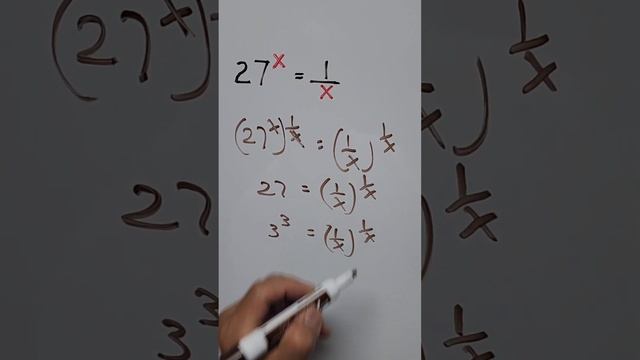 27^x = 1/x
(27^x)^(1/x) = (1/x)^(1/x)
27 = (1/x)^(1/x)
3^3 = (1/x)^(1/x)